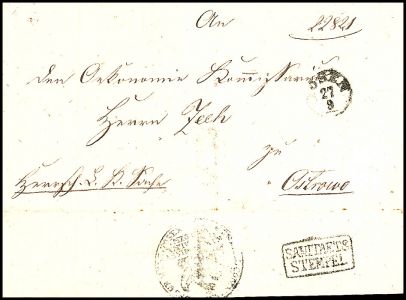 An 22821
den Oekonomie Kommissarius
Herrn Zech
27
9
zu
Herrsch. L. K. Sache
Ostrowo
SANITAETS
STEMPEL